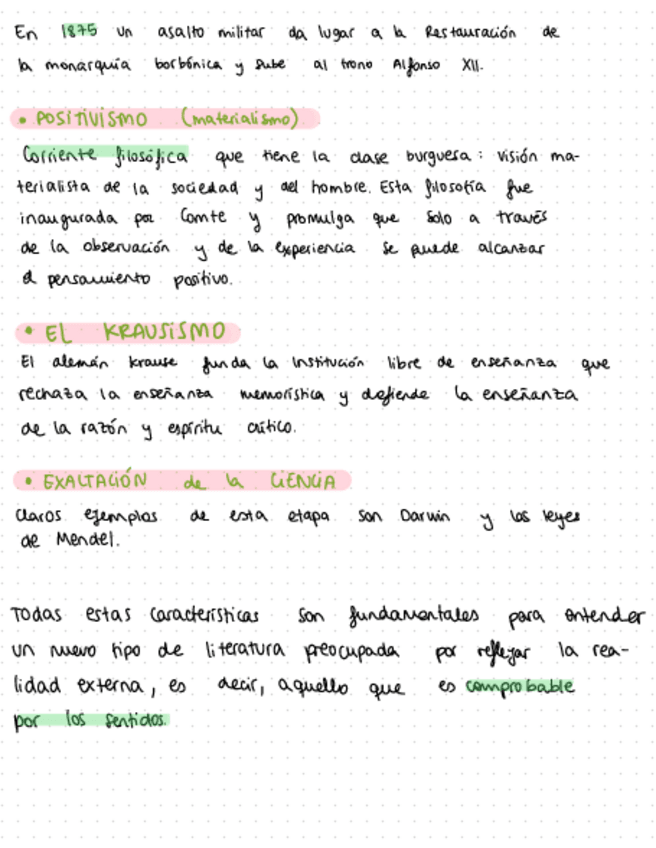 En 1875 un asalto militar da lugar a la Restauración de
la monarquía borbónica y sube al trono Alfonso XII.
• POSITIVISMO (materialismo)
Corriente filosófica que tiene la clase burguesa: visión ma-
terialista de la sociedad y del hombre. Esta filosofía fue
inaugurada por Comte y promulga que solo a través
de la observación y de la experiencia se puede alcanzar
el pensamiento positivo.
• EL KRAUSISMO
El alemán Krause funda la Institución libre de enseñanza que
rechaza la enseñanza memorística y defiende la enseñanza
de la razón y espíritu crítico.
• EXALTACIÓN de la CIENCIA
Claros ejemplos de esta etapa son Darwin y las leyes
de Mendel.
Todas estas características son fundamentales para entender
un nuevo tipo de literatura preocupada por reflejar la rea-
lidad externa, es decir, aquello que es comprobable
por los sentidos.